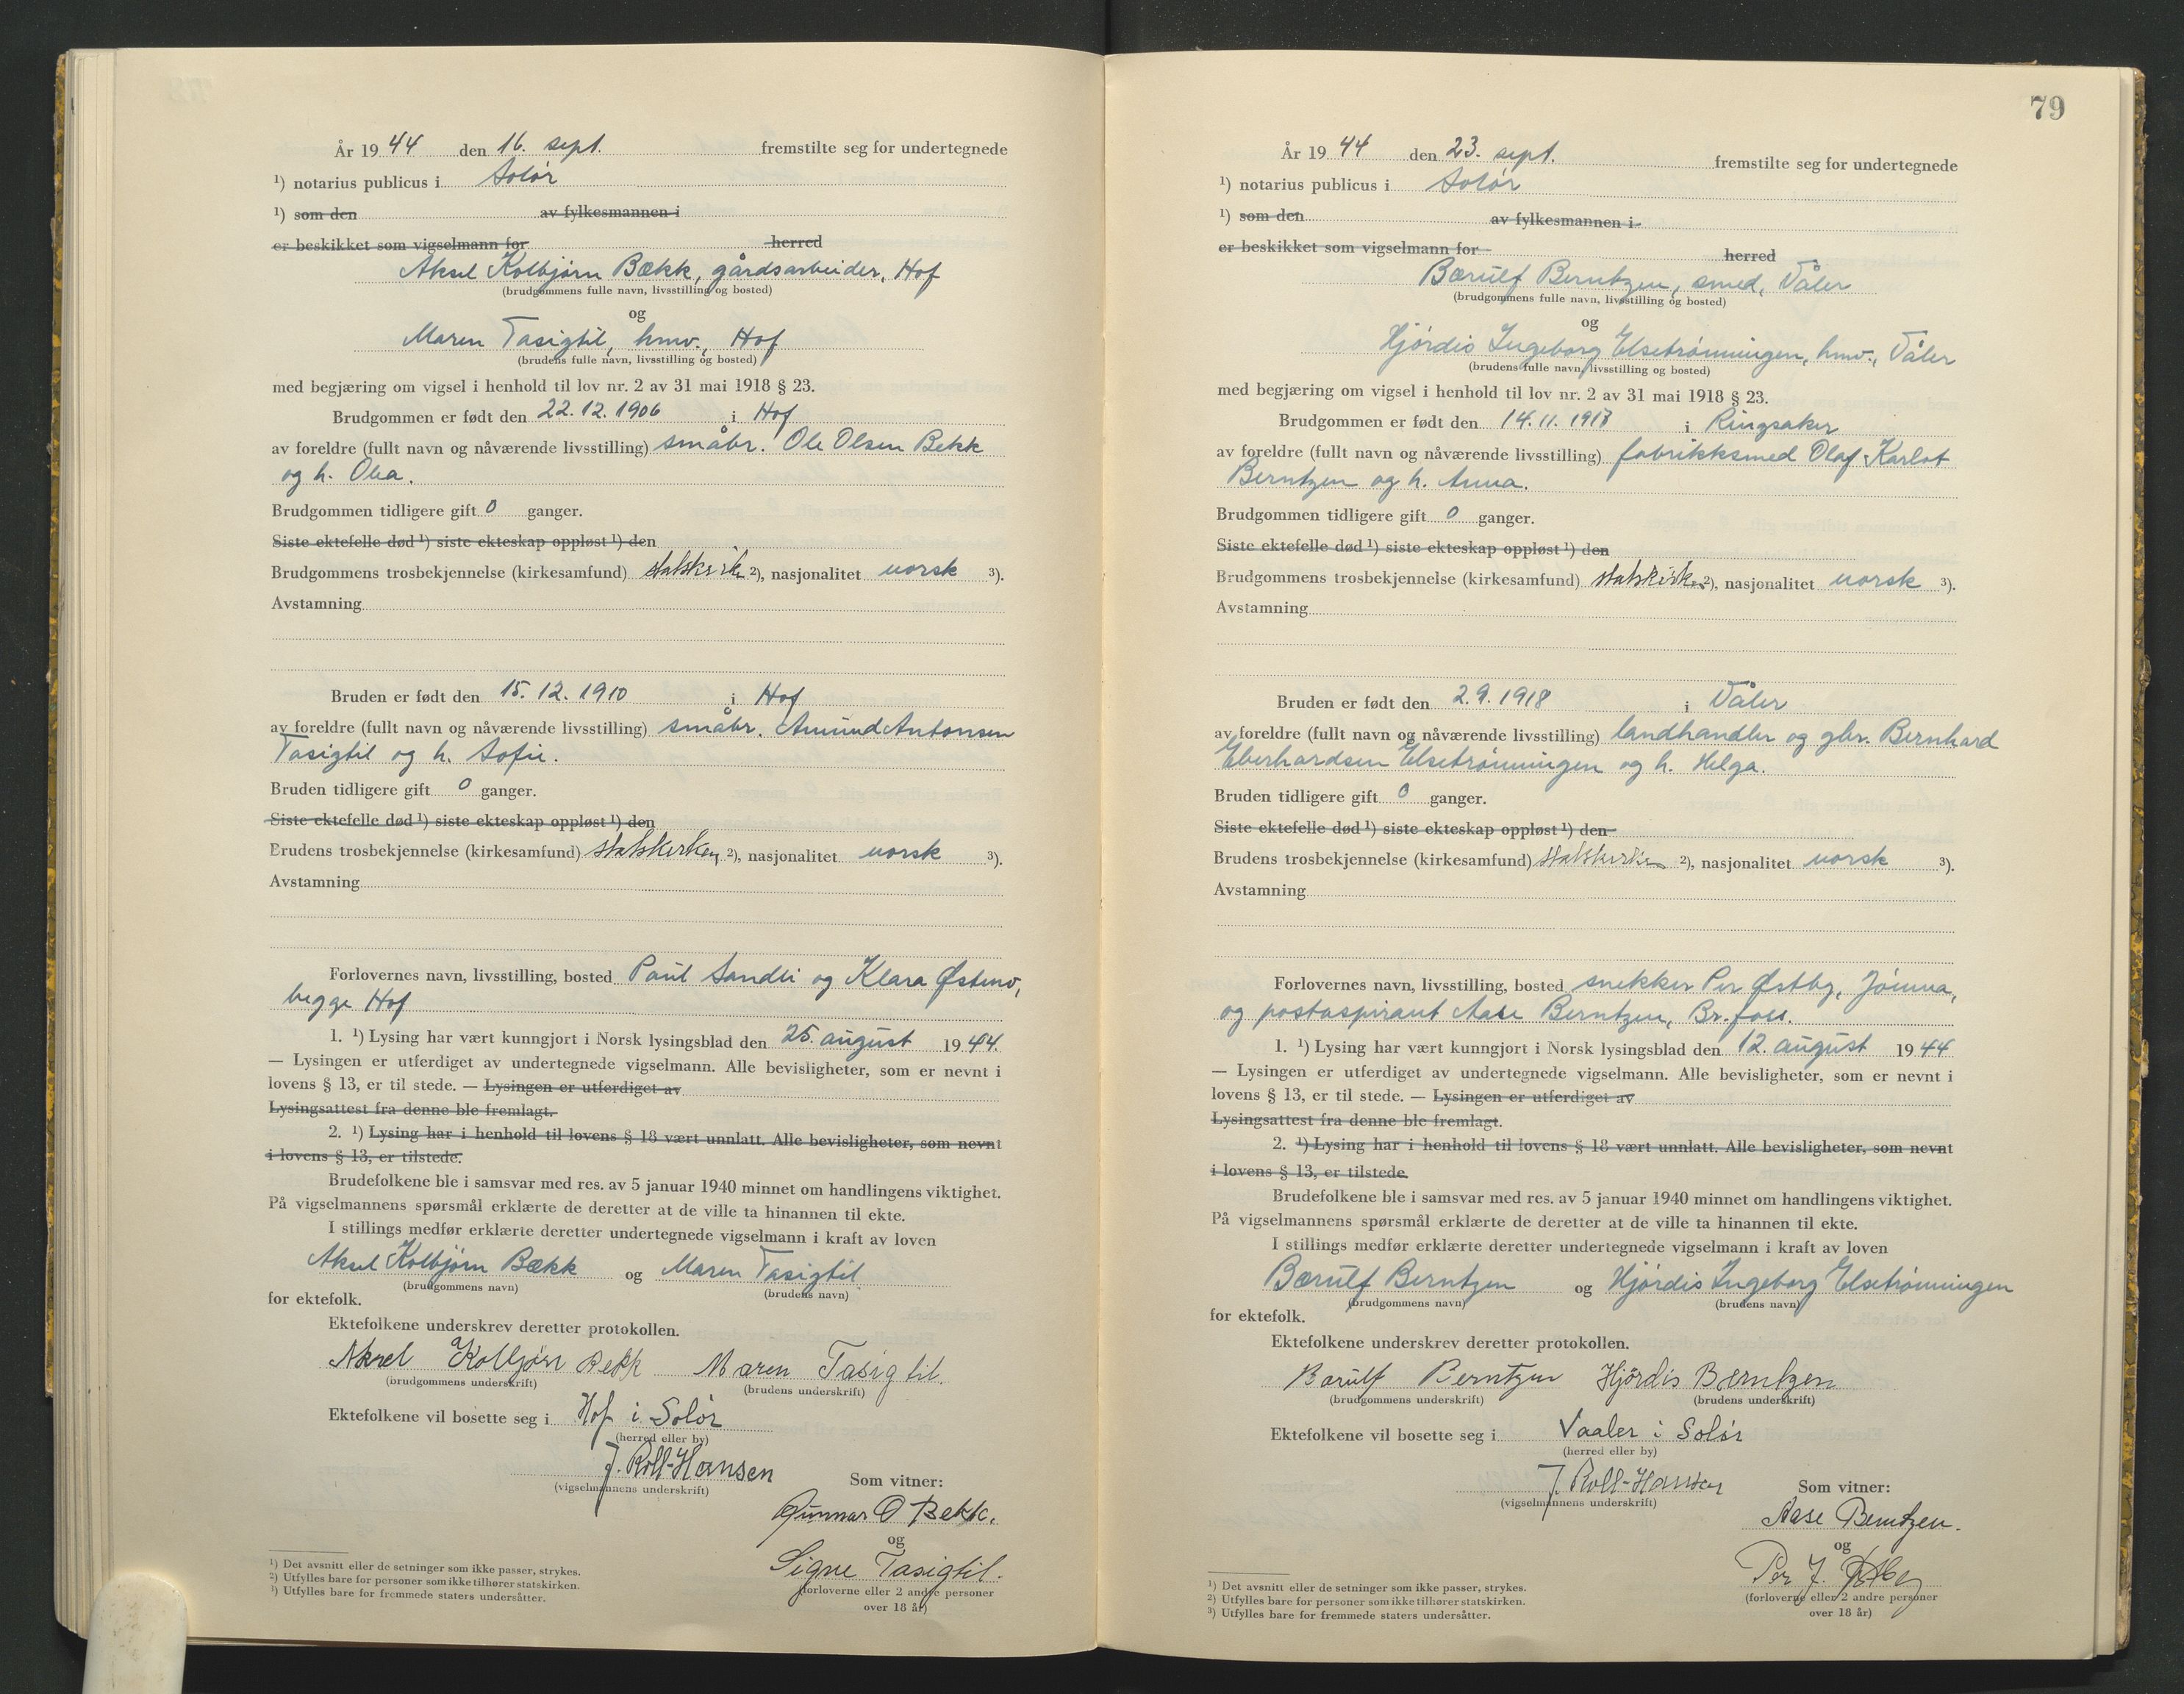 År 19 44 den 16. sept. fremstilte seg for undertegnede
¹) notarius publicus i Solør
¹) som den av fylkesmannen i
er beskikket som vigselmann for herred
Aksel Kolbjørn Bækk, gårdsarbeider, Hof
(brudgommens fulle navn, livsstilling og bosted)
og
Maren Tasigtil, hmv., Hof
(brudens fulle navn, livsstilling og bosted)
med begjæring om vigsel i henhold til lov nr. 2 av 31 mai 1918 § 23.
Brudgommen er født den 22.12.1906 i Hof
av foreldre (fullt navn og nåværende livsstilling) småbr. Ole Olsen Bekk
og h. Olea.
Brudgommen tidligere gift 0 ganger.
Siste ektefelle død ¹) siste ekteskap oppløst ¹) den
Brudgommens trosbekjennelse (kirkesamfund) statskirk. ²), nasjonalitet norsk ³).
Avstamning
Bruden er født den 15.12.1910 i Hof
av foreldre (fullt navn og nåværende livsstilling) småbr. Amund Antonsen
Tasigtil og h. Sofie.
Bruden tidligere gift 0 ganger.
Siste ektefelle død ¹) siste ekteskap oppløst ¹) den
Brudens trosbekjennelse (kirkesamfund) statskirken ²), nasjonalitet norsk ³).
Avstamning
Forlovernes navn, livsstilling, bosted Paul Sandli og Klara Østmo,
begge Hof
1. ¹) Lysing har vært kunngjort i Norsk lysingsblad den 25. august 19 44.
— Lysingen er utferdiget av undertegnede vigselmann. Alle bevisligheter, som er nevnt i
lovens § 13, er til stede. — Lysingen er utferdiget av
Lysingsattest fra denne ble fremlagt.
2. ¹) Lysing har i henhold til lovens § 18 vært unnlatt. Alle bevisligheter, som nevnt
i lovens § 13, er tilstede.
Brudefolkene ble i samsvar med res. av 5 januar 1940 minnet om handlingens viktighet.
På vigselmannens spørsmål erklærte de deretter at de ville ta hinannen til ekte.
I stillings medfør erklærte deretter undertegnede vigselmann i kraft av loven
Aksel Kolbjørn Bækk og Maren Tasigtil
(brudgommens navn) (brudens navn)
for ektefolk.
Ektefolkene underskrev deretter protokollen.
Aksel Kolbjørn Bekk Maren Tasigtil.
(brudgommens underskrift) (brudens underskrift)
Ektefolkene vil bosette seg i Hof i Solør
(herred eller by)
J. Roll-Hansen
(vigselmannens underskrift)
Som vitner:
Gunnar O Bekk.
og
Signe Tasigtil.
(forloverne eller 2 andre personer
over 18 år)
¹) Det avsnitt eller de setninger som ikke passer, strykes.
²) Utfylles bare for personer som ikke tilhører statskirken.
³) Utfylles bare for fremmede staters undersåtter.
79
År 19 44 den 23. sept. fremstilte seg for undertegnede
¹) notarius publicus i Solør
¹) som den av fylkesmannen i
er beskikket som vigselmann for herred
Bærulf Berntzen, smed, Våler
(brudgommens fulle navn, livsstilling og bosted)
og
Hjørdis Ingeborg Elsetrønningen, hmv., Våler
(brudens fulle navn, livsstilling og bosted)
med begjæring om vigsel i henhold til lov nr. 2 av 31 mai 1918 § 23.
Brudgommen er født den 14.11. i Ringsaker
av foreldre (fullt navn og nåværende livsstilling) fabrikksmed Olaf Karlot
Berntzen og h. Anna.
Brudgommen tidligere gift 0 ganger.
Siste ektefelle død ¹) siste ekteskap oppløst ¹) den
Brudgommens trosbekjennelse (kirkesamfund) statskirken ²), nasjonalitet norsk ³).
Avstamning
Bruden er født den 2.9.1918 i Våler
av foreldre (fullt navn og nåværende livsstilling) landhandler og gbr. Bernhard
Eberhardsen Elsetrønningen og h. Helga.
Bruden tidligere gift 0 ganger.
Siste ektefelle død ¹) siste ekteskap oppløst ¹) den
Brudens trosbekjennelse (kirkesamfund) statskirken ²), nasjonalitet norsk ³).
Avstamning
Forlovernes navn, livsstilling, bosted snekker Per Østby, Jømna,
og postaspirant Aase Berntzen, Br.foss.
1. ¹) Lysing har vært kunngjort i Norsk lysingsblad den 12. august 19 44
— Lysingen er utferdiget av undertegnede vigselmann. Alle bevisligheter, som er nevnt i
lovens § 13, er til stede. — Lysingen er utferdiget av
Lysingsattest fra denne ble fremlagt.
2. ¹) Lysing har i henhold til lovens § 18 vært unnlatt. Alle bevisligheter, som nevnt
i lovens § 13, er tilstede.
Brudefolkene ble i samsvar med res. av 5 januar 1940 minnet om handlingens viktighet.
På vigselmannens spørsmål erklærte de deretter at de ville ta hinannen til ekte.
I stillings medfør erklærte deretter undertegnede vigselmann i kraft av loven
Bærulf Berntzen og Hjørdis Ingeborg Elsetrønningen
(brudgommens navn) (brudens navn)
for ektefolk.
Ektefolkene underskrev deretter protokollen.
Bærulf Berntzen Hjørdis Berntzen
(brudgommens underskrift) (brudens underskrift)
Ektefolkene vil bosette seg i Vaaler i Solør
(herred eller by)
J. Roll-Hansen
(vigselmannens underskrift)
Som vitner:
Aase Berntzen.
og
Per J. Østby
(forloverne eller 2 andre personer
over 18 år)
¹) Det avsnitt eller de setninger som ikke passer, strykes.
²) Utfylles bare for personer som ikke tilhører statskirken.
³) Utfylles bare for fremmede staters undersåtter.